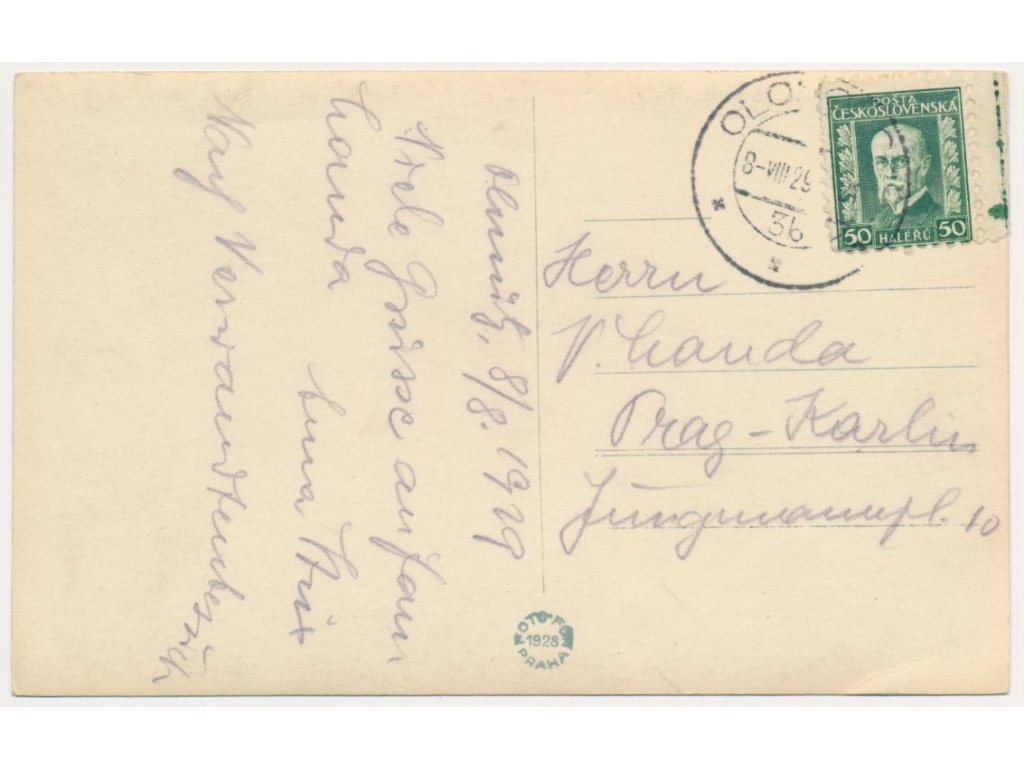 Olmütz, 8/8. 1929
Viele Grüsse an Fam
Landa
Nach Verwandtenbesuch
Herrn
V. Landa
Prag-Karlin
Jungmannpl. 10
OLO
8-VIII 29
3b
POŠTA
ČESKOSLOVENSKÁ
50 HALÉŘŮ 50
FOTO FON
1928
PRAHA